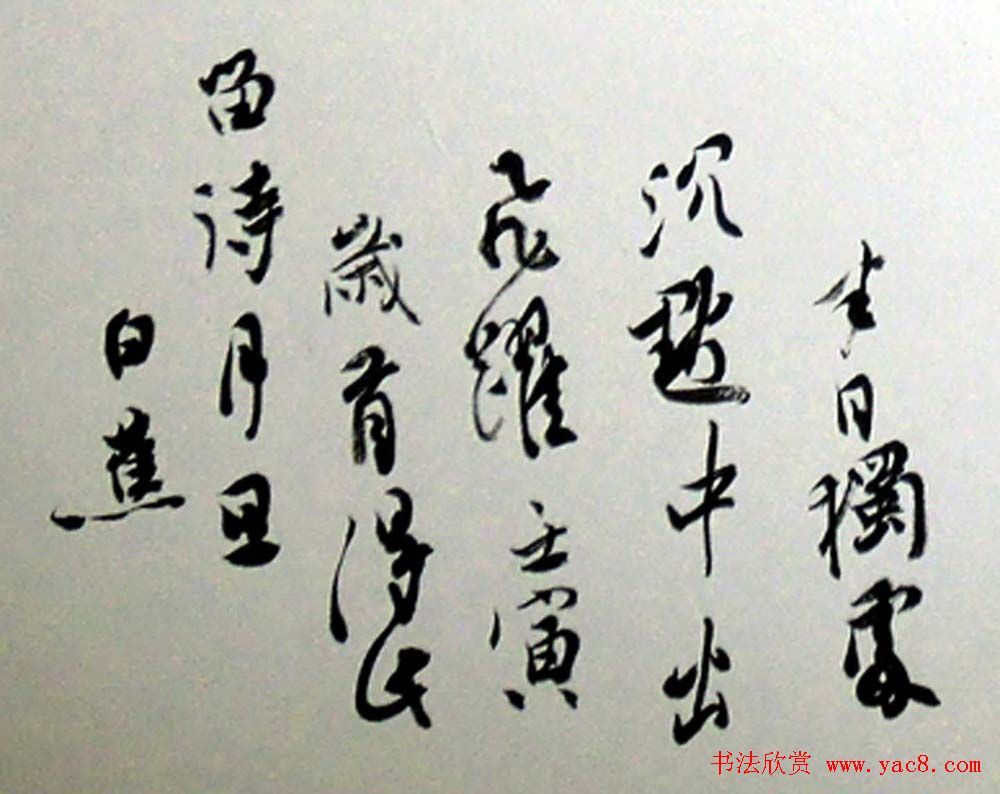 半日獨處
沉默中出
飛躍 壬寅
歲首得此
留詩月旦
白蕉
书法欣赏 www.yac8.com